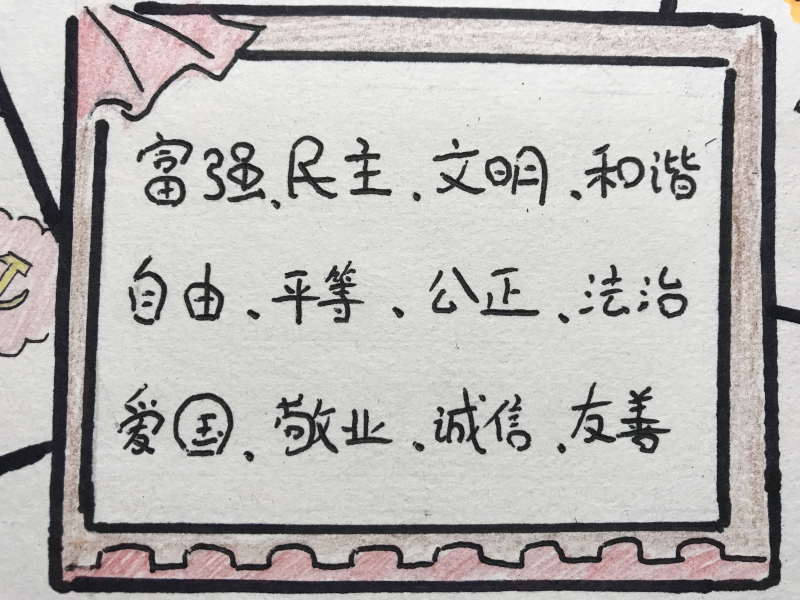 富强、民主、文明、和谐
自由、平等、公正、法治
爱国、敬业、诚信、友善